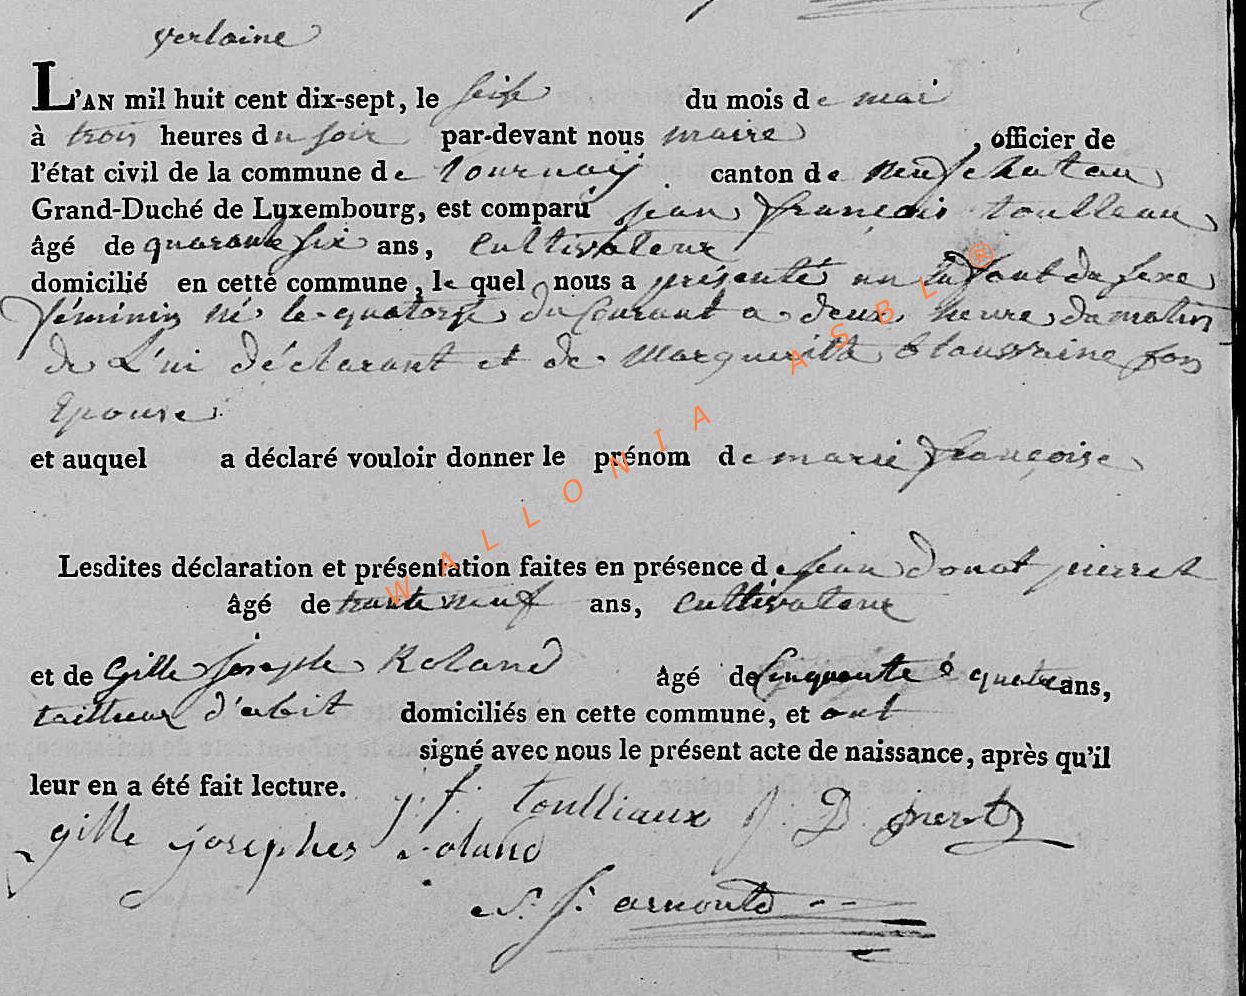 verlaine
L'AN mil huit cent dix-sept, le seize du mois de mai
à trois heures du soir par-devant nous maire, officier de
l'état civil de la commune de tournay canton de neufchateau
Grand-Duché de Luxembourg, est comparu jean françois toulleau
âgé de quarante six ans, Cultivateur
domicilié en cette commune, le quel nous a présenté un Enfant du sexe
féminin né le quatorze du Courant a deux heure du matin
de L'ui déclarant et de Marguerite son
Epouse
et auquel a déclaré vouloir donner le prénom de marie françoise
Lesdites déclaration et présentation faites en présence de jean donat pierret
âgé de trente neuf ans, Cultivateur
et de Gille joseph Roland âgé de Cinquante è quatre ans,
tailleur d'abit domiciliés en cette commune, et ont
signé avec nous le présent acte de naissance, après qu'il
leur en a été fait lecture.
j. f. toulliaux J. D. pieret
gille josephes roland
f. arnould
WALLONIA ASBL ®